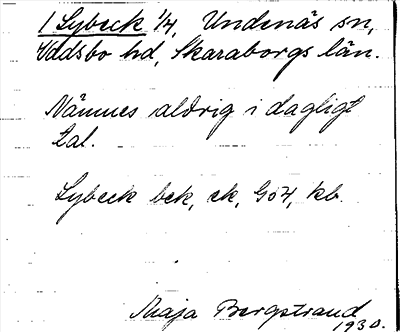 1 Lybeck 1/4, Undenäs sn,
Vadsbo hd, Skaraborgs län.
Nämnes aldrig i dagligt
tal.
Lybeck bek, ek, Go4, kb.
Maja Bergstrand
1930.